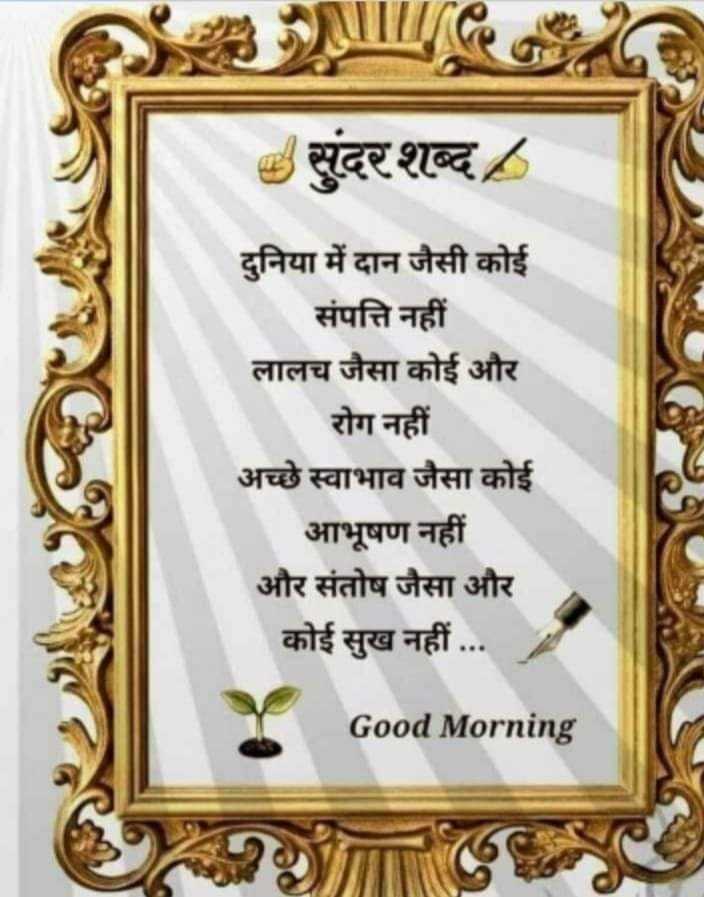 सुंदर शब्द
दुनिया में दान जैसी कोई
संपत्ति नहीं
लालच जैसा कोई और
रोग नहीं
अच्छे स्वाभाव जैसा कोई
आभूषण नहीं
और संतोष जैसा और
कोई सुख नहीं ...
Good Morning